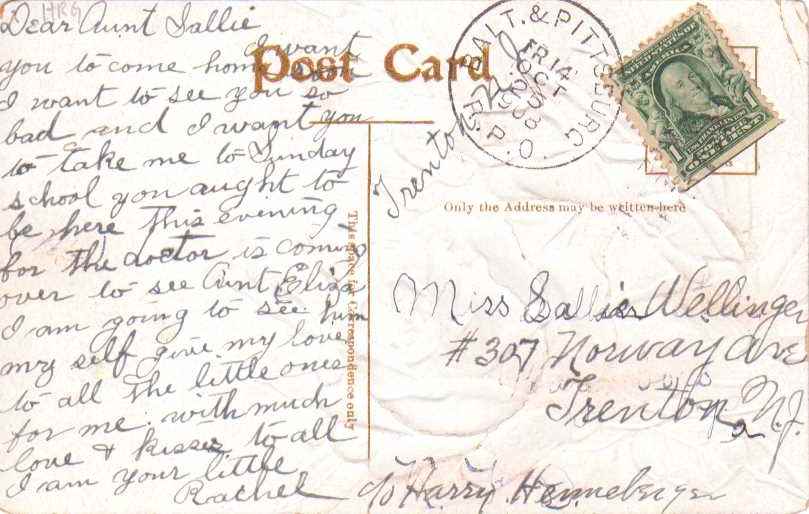 HRG
Dear Aunt Sallie
I want
you to come home soon
I want to see you so
bad and I want you
to take me to Sunday
school you aught to
be here this evening
for the doctor is coming
over to see Aunt Eliza
I am going to see him
my self give my love
to all the little ones
for me. with much
love & kisses to all
I am your little
Rachel
Post Card
This space for Correspondence only
Trenton
BALT. & PITTSBURG
TR 14
OCT
R.P.O.
1
Only the Address may be written here
Miss Sallie Wellinger
#307 Norway Ave
Trenton N.J.
c/o Harry Henneberger